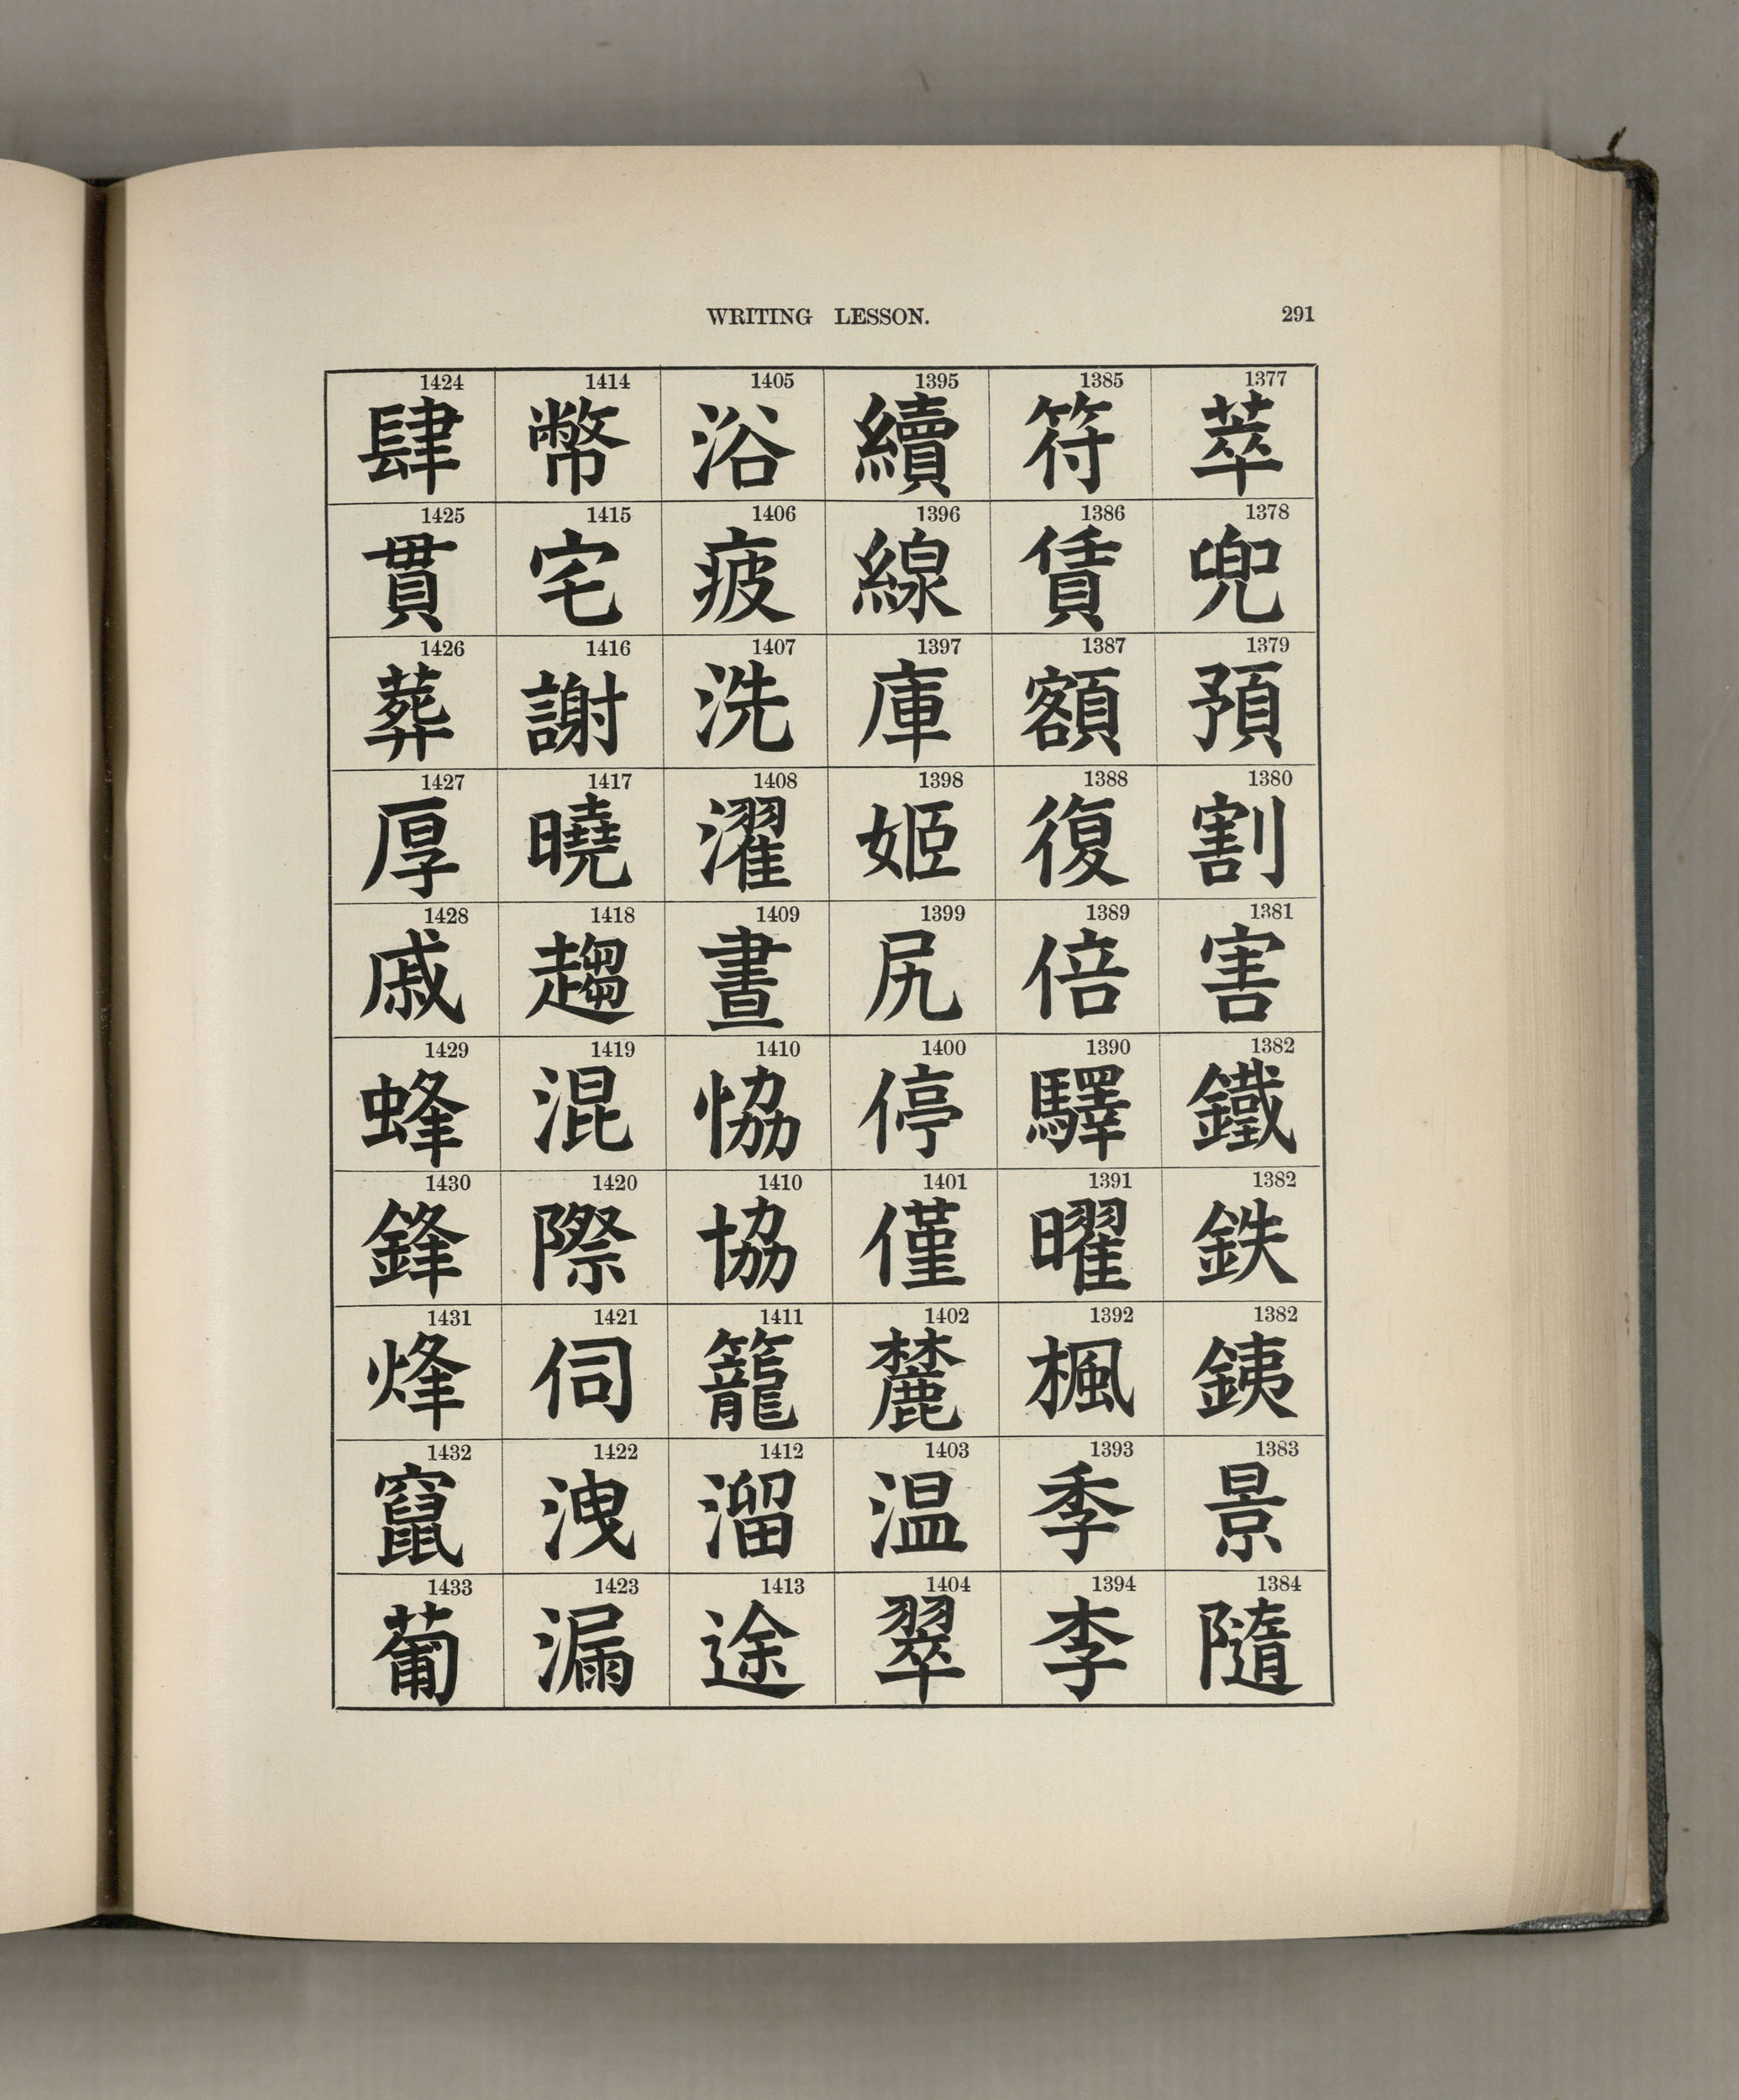 WRITING LESSON. 291
1377 萃
1378 兜
1379 預
1380 割
1381 害
1382 鐵
1382 鉄
1382 銕
1383 景
1384 隨
1385 符
1386 賃
1387 額
1388 復
1389 倍
1390 驛
1391 曜
1392 楓
1393 季
1394 李
1395 續
1396 線
1397 庫
1398 姫
1399 尻
1400 停
1401 僅
1402 麓
1403 温
1404 翠
1405 浴
1406 疲
1407 洗
1408 濯
1409 晝
1410 恊
1410 協
1411 籠
1412 溜
1413 途
1414 幣
1415 宅
1416 謝
1417 曉
1418 趨
1419 混
1420 際
1421 伺
1422 洩
1423 漏
1424 肆
1425 貫
1426 葬
1427 厚
1428 戚
1429 蜂
1430 鋒
1431 烽
1432 竄
1433 葡